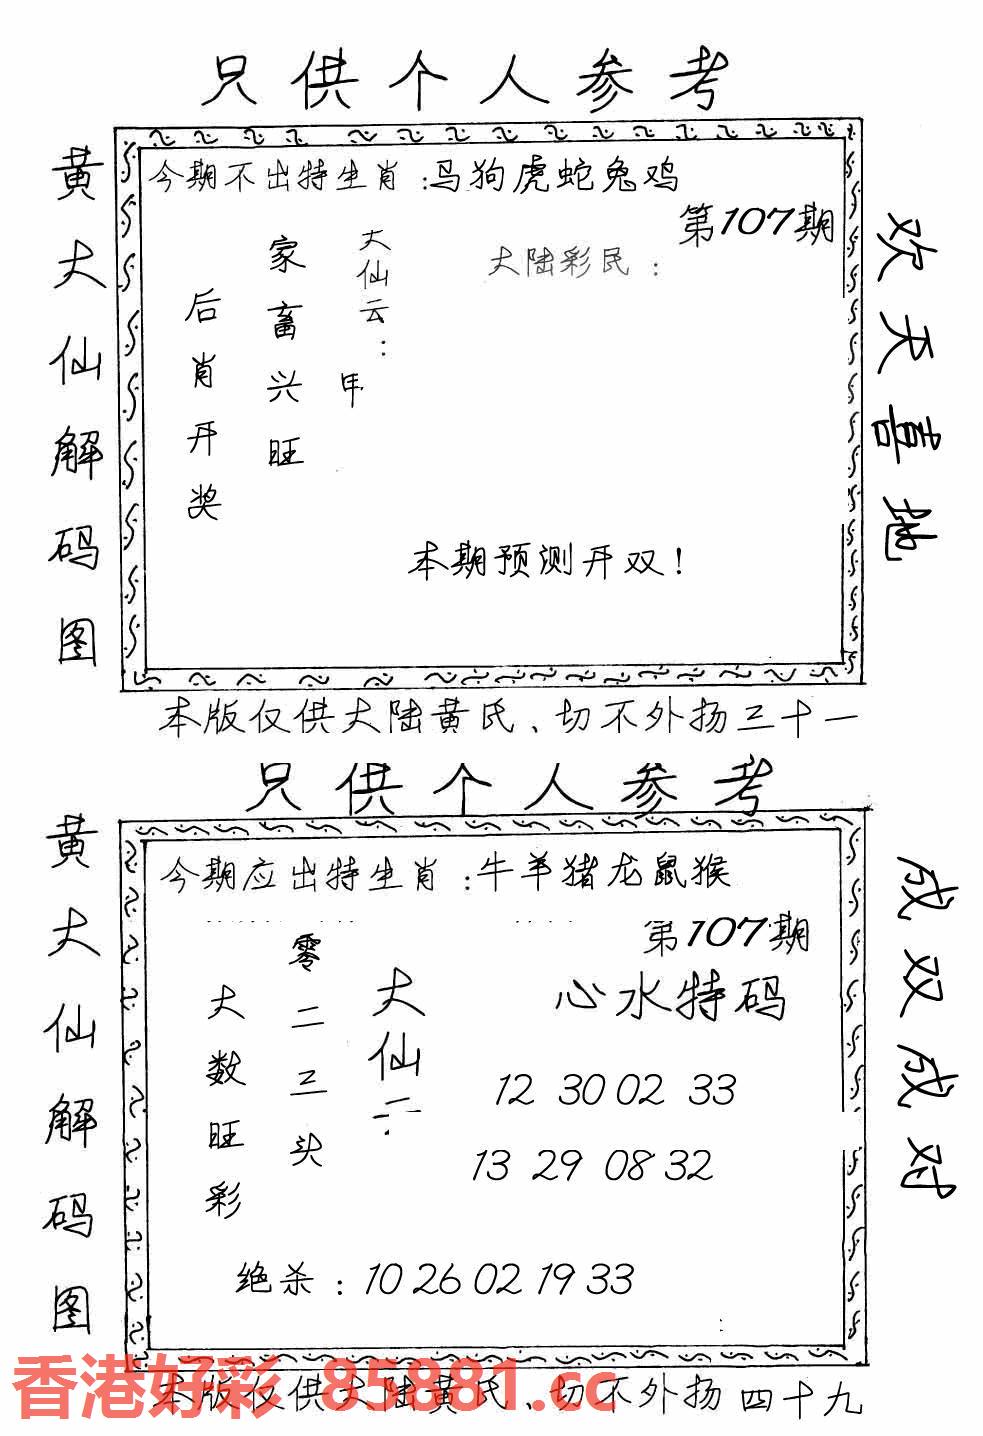 只供个人参考
黄大仙解码图
今期不出特生肖:马狗虎蛇兔鸡
第107期
大陆彩民:
大仙云:
甲
家畜兴旺
后肖开奖
本期预测开双!
欢天喜地
本版仅供大陆黄氏、切不外扬三十一
只供个人参考
黄大仙解码图
今期应出特生肖:牛羊猪龙鼠猴
第107期
心水特码
大仙
零二三头
大数旺彩
12 30 02 33
13 29 08 32
绝杀:10 26 02 19 33
成双成对
香港好彩 85881.cc
本版仅供大陆黄氏、切不外扬四十九